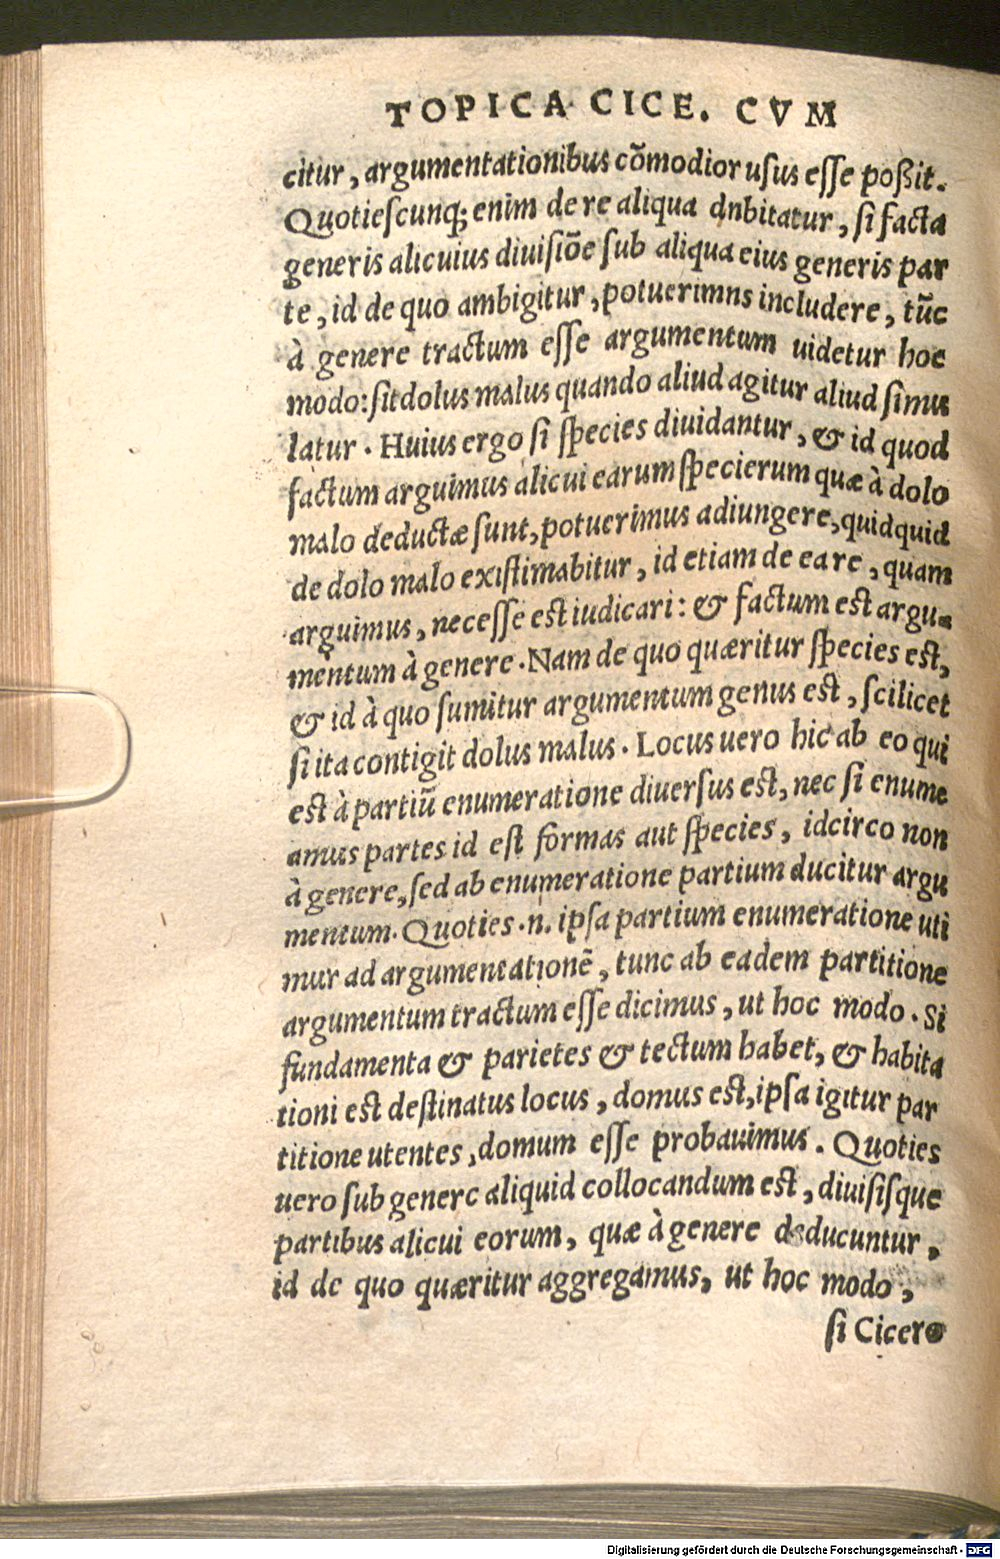 TOPICA CICE. CVM
citur, argumentationibus cōmodior usus esse poßit.
Quotiescunq; enim de re aliqua dnbitatur, si facta
generis alicuius diuisiōe sub aliqua eius generis par
te, id de quo ambigitur, potuerimns includere, tūc
à genere tractum esse argumentum uidetur hoc
modo: sit dolus malus quando aliud agitur aliud simu
latur. Huius ergo si species diuidantur, & id quod
factum arguimus alicui earum specierum quæ à dolo
malo deductæ sunt, potuerimus adiungere, quidquid
de dolo malo existimabitur, id etiam de ea re, quam
arguimus, necesse est iudicari: & factum est argu-
mentum à genere. Nam de quo quæritur species est,
& id à quo sumitur argumentum genus est, scilicet
si ita contigit dolus malus. Locus uero hic ab eo qui
est à partiū enumeratione diuersus est, nec si enume
amus partes id est formas aut species, idcirco non
à genere, sed ab enumeratione partium ducitur argu
mentum. Quoties .n. ipsa partium enumeratione uti
mur ad argumentationē, tunc ab eadem partitione
argumentum tractum esse dicimus, ut hoc modo. Si
fundamenta & parietes & tectum habet, & habita
tioni est destinatus locus, domus est, ipsa igitur par
titione utentes, domum esse probauimus. Quoties
uero sub genere aliquid collocandum est, diuisisque
partibus alicui eorum, quæ à genere deducuntur,
id de quo quæritur aggregamus, ut hoc modo;
si Cicero
Digitalisierung gefördert durch die Deutsche Forschungsgemeinschaft - DFG